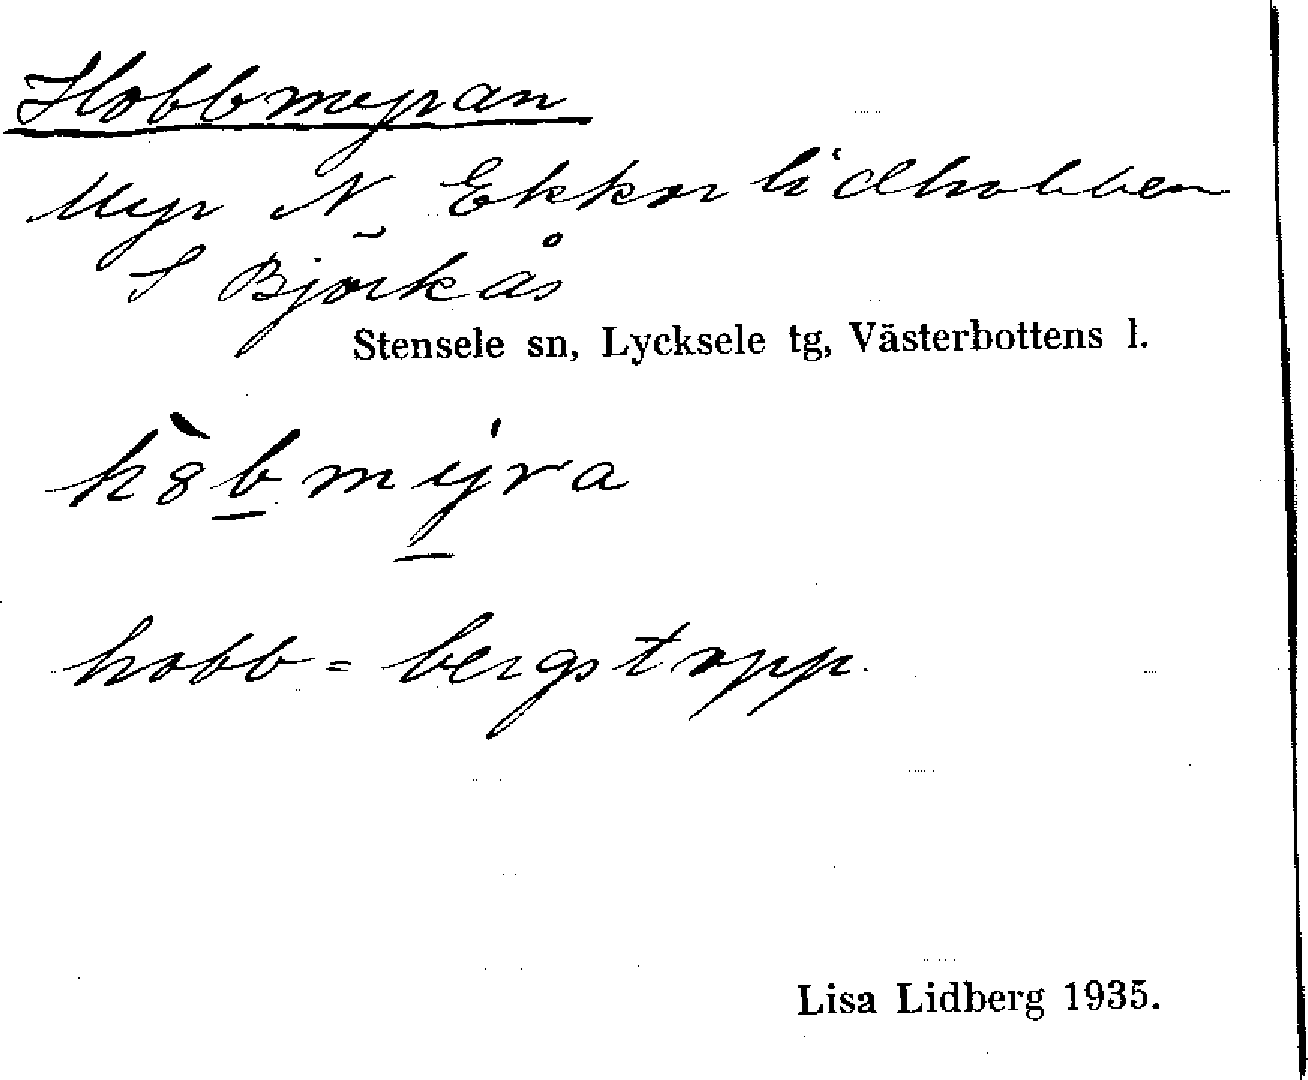 Hobbmyran
Myr N Ekkorlidhobben
S Björkås
Stensele sn, Lycksele tg, Västerbottens l.
hobb = bergstopp.
Lisa Lidberg 1935.